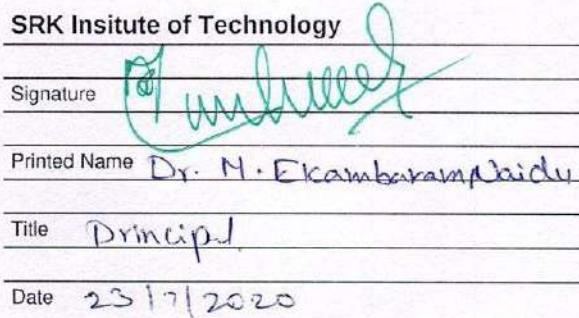 SRK Insitute of Technology
Signature
Printed Name Dr. M. Ekambaram Naidu
Title Principal
Date 23/7/2020